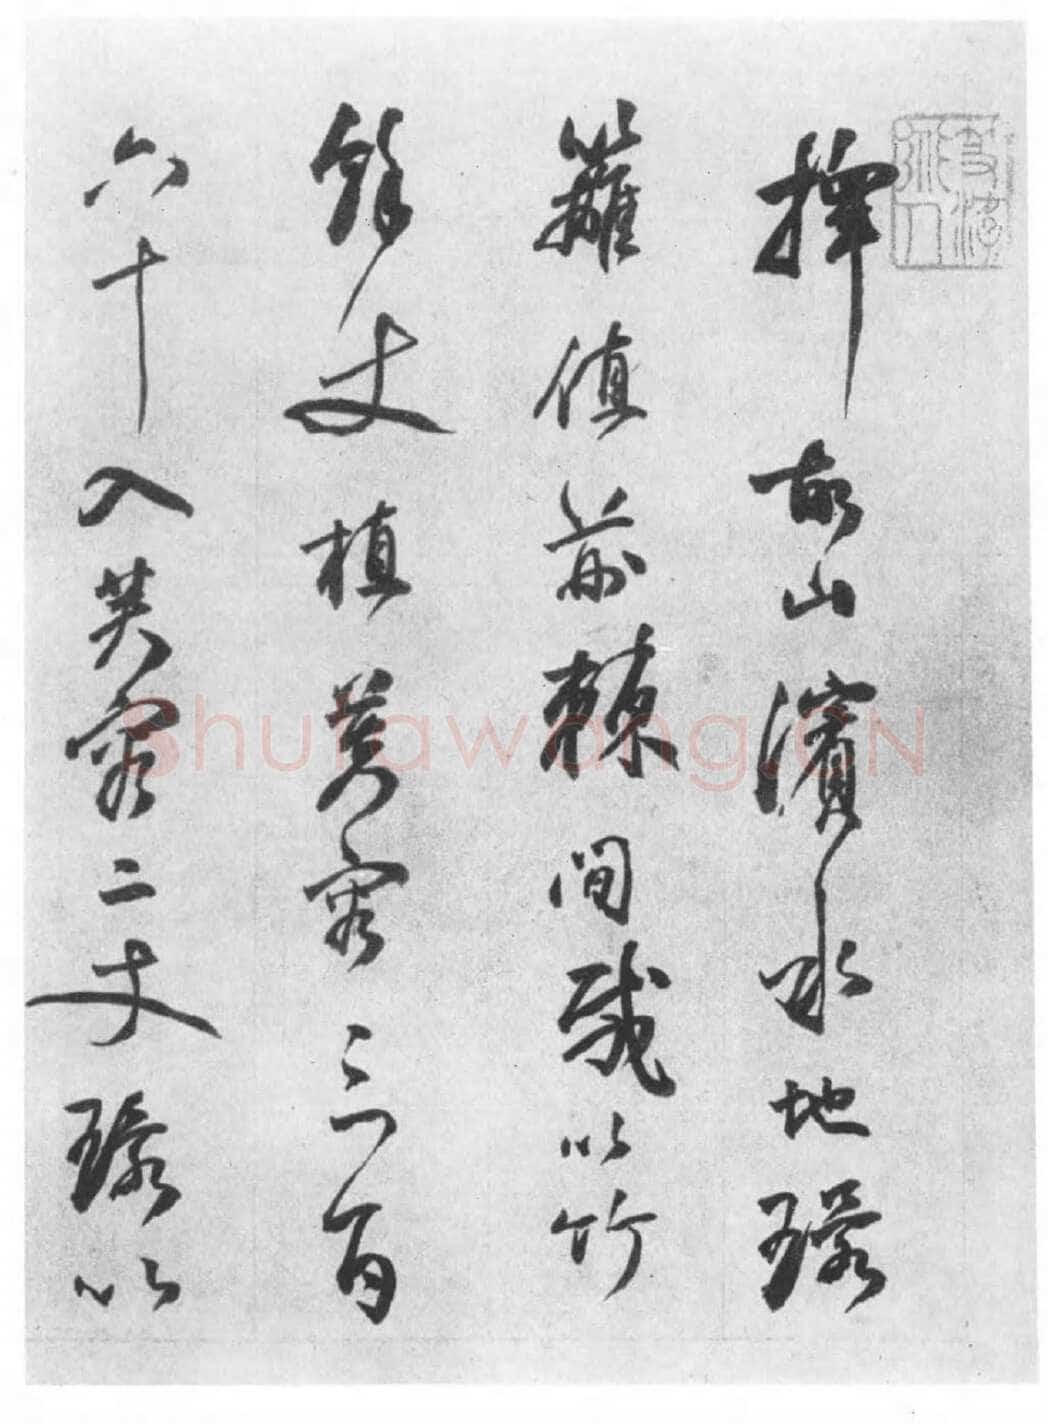 擇故山濱水地環
籬植荊棘間栽以竹
餘丈植芙蓉三百
六十入芙蓉二丈環以
Shufawang.CN